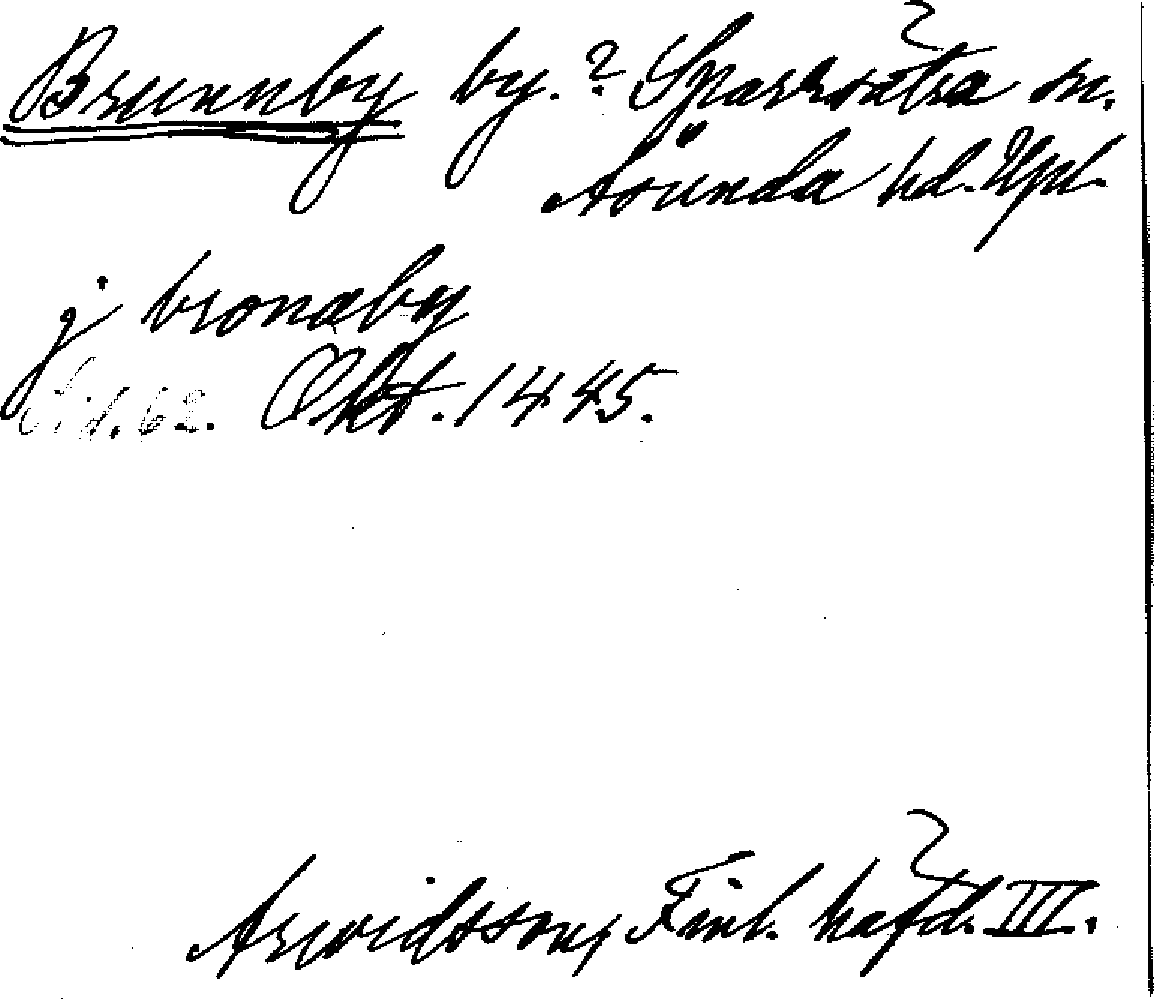 Brunnby by. ? Sparrsätra sn.
Åsunda hd. Upl.
j bronaby
Sid. 62. Okt. 1445.
Arwidsson, Finl. häfd. III.